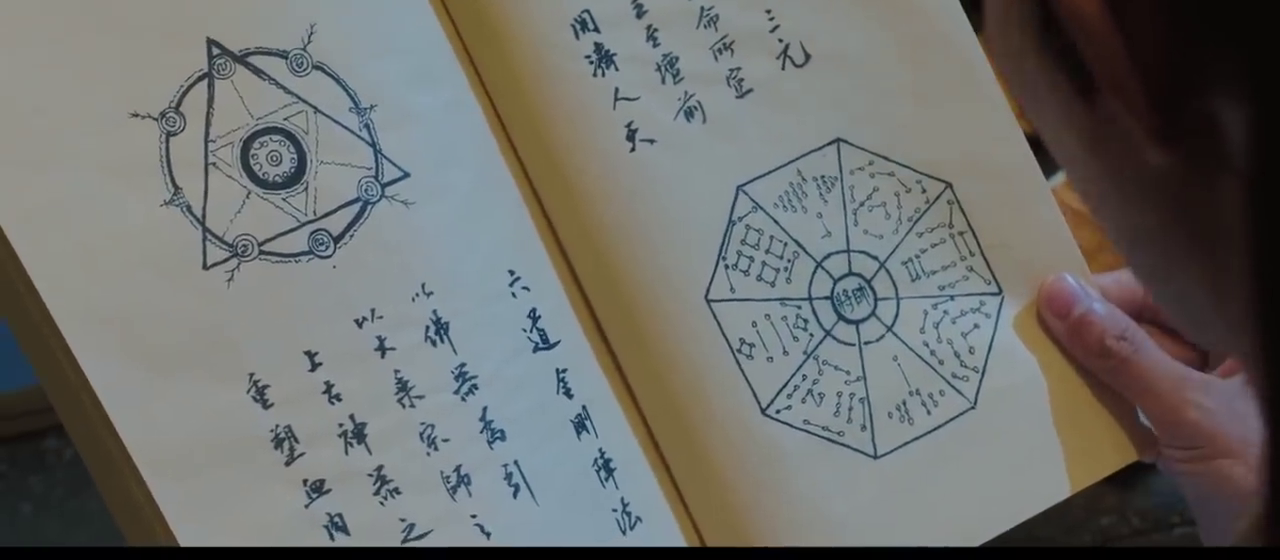 三元
命所定
至壇前
開濟人天
將帥
六道金剛陣法
以佛器為引
以大乘宗師之
上古神器之
重塑血肉